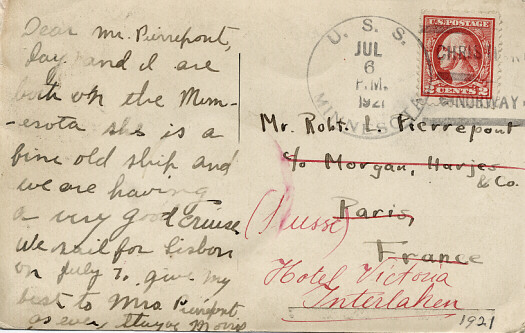 Dear Mr. Pierrepont,
Jay and I are
both on the Minn-
esota she is a
fine old ship and
we are having
a very good cruise
We sail for Lisbon
on July 7. give my
best to Mrs Pierrepont
as ever, Morris
U. S. S.
JUL
6
P.M.
1921
MINNESOTA
U.S. POSTAGE
2 CENTS 2
NORWAY
Mr. Robt. L. Pierrepont
c/o Morgan, Harjes
& Co.
Paris,
(Suisse)
France
Hotel Victoria
Interlaken
1921